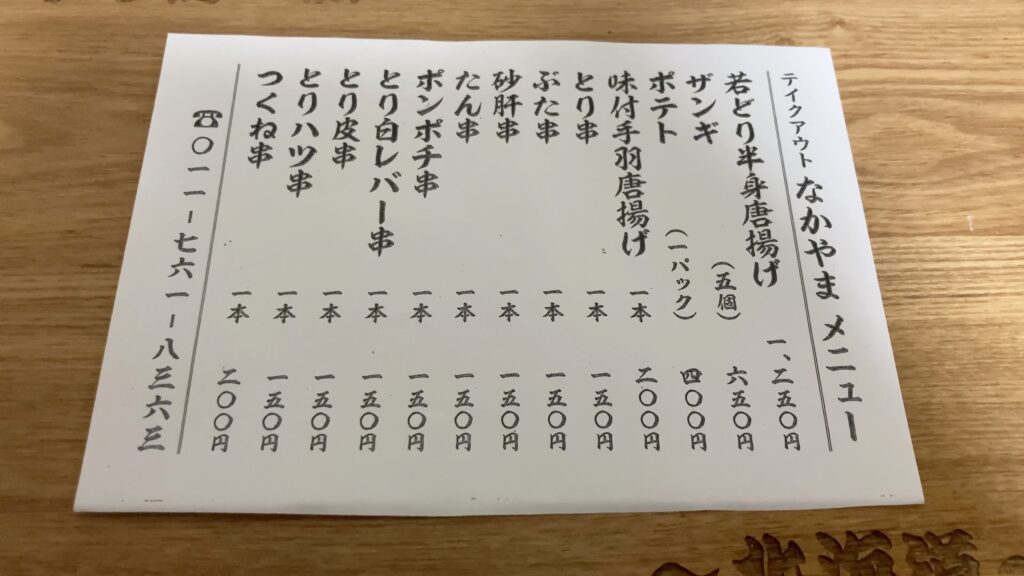 テイクアウト なかやま メニュー
若どり半身唐揚げ 一、二五〇円
ザンギ (五個) 六五〇円
ポテト (一パック) 四〇〇円
味付手羽唐揚げ 一本 二〇〇円
とり串 一本 一五〇円
ぶた串 一本 一五〇円
砂肝串 一本 一五〇円
たん串 一本 一五〇円
ボンボチ串 一本 一五〇円
とり白レバー串 一本 一五〇円
とり皮串 一本 一五〇円
とりハツ串 一本 一五〇円
つくね串 一本 二〇〇円
☎〇一一-七六一-八三六三
〜北海道